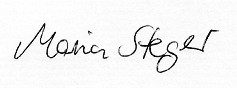 Maria Steger